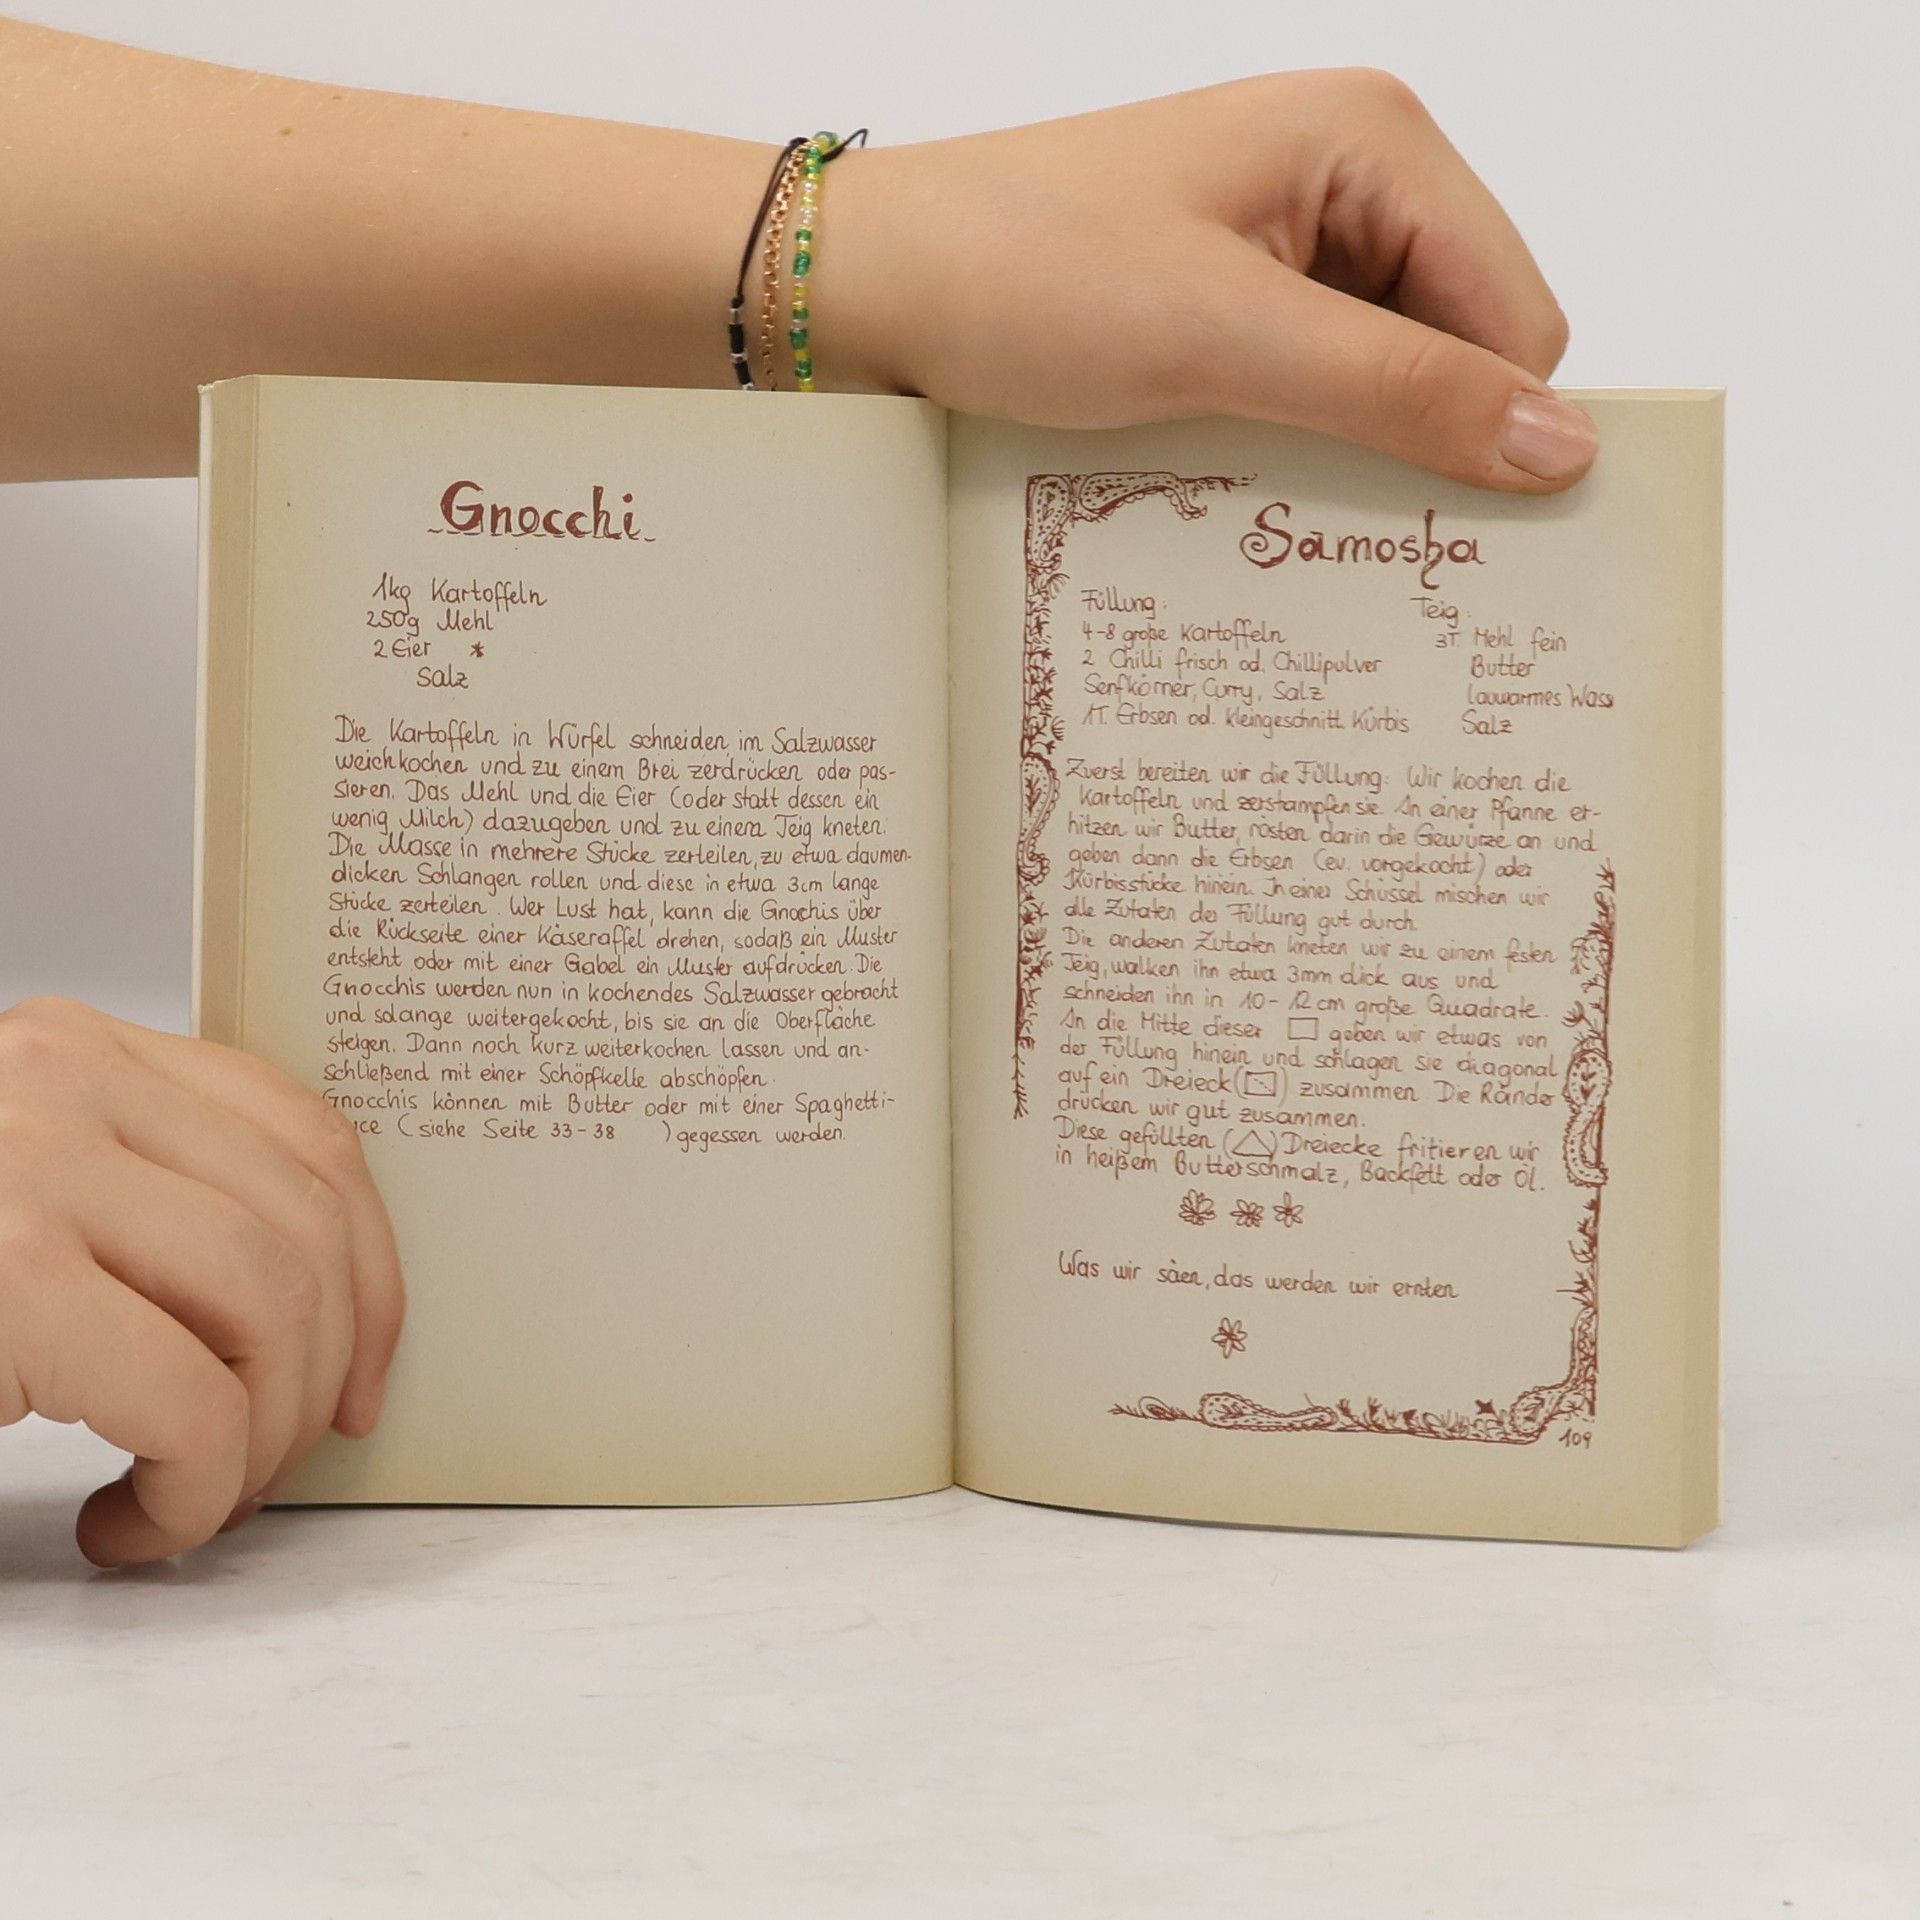 Gnocchi
1kg Kartoffeln
250g Mehl
2 Eier *
Salz
Die Kartoffeln in Würfel schneiden, im Salzwasser
weichkochen und zu einem Brei zerdrücken oder pas-
sieren. Das Mehl und die Eier (oder statt dessen ein
wenig Milch) dazugeben und zu einem Teig kneten.
Die Masse in mehrere Stücke zerteilen, zu etwa daumen-
dicken Schlangen rollen und diese in etwa 3cm lange
Stücke zerteilen. Wer Lust hat, kann die Gnochis über
die Rückseite einer Käseraffel drehen, sodaß ein Muster
entsteht oder mit einer Gabel ein Muster aufdrücken. Die
Gnocchis werden nun in kochendes Salzwasser gebracht
und solange weitergekocht, bis sie an die Oberfläche
steigen. Dann noch kurz weiterkochen lassen und an-
schließend mit einer Schöpfkelle abschöpfen.
Gnocchis können mit Butter oder mit einer Spaghetti-
(siehe Seite 33-38 ) gegessen werden.
Samosha
Füllung:
4-8 große Kartoffeln
2 Chilli frisch od. Chillipulver
Senfkörner, Curry, Salz
1T. Erbsen od. kleingeschnitt. Kürbis
Teig:
3T. Mehl fein
Butter
lauwarmes Wass
Salz
Zuerst bereiten wir die Füllung: Wir kochen die
Kartoffeln und zerstampfen sie. In einer Pfanne er-
hitzen wir Butter, rösten darin die Gewürze an und
geben dann die Erbsen (ev. vorgekocht) oder
Kürbisstücke hinein. In einer Schüssel mischen wir
alle Zutaten der Füllung gut durch.
Die anderen Zutaten kneten wir zu einem festen
Teig, walken ihn etwa 3mm dick aus und
schneiden ihn in 10-12cm große Quadrate.
In die Mitte dieser □ geben wir etwas von
der Füllung hinein und schlagen sie diagonal
auf ein Dreieck (◺) zusammen. Die Ränder
drücken wir gut zusammen.
Diese gefüllten (△) Dreiecke fritieren wir
in heißem Butterschmalz, Backfett oder Öl.
Was wir säen, das werden wir ernten
109